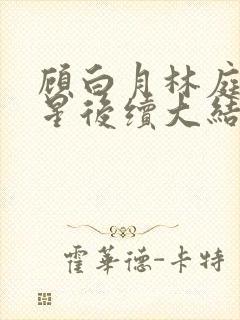 顾白月林庭
星後續大結
霍華德-卡特